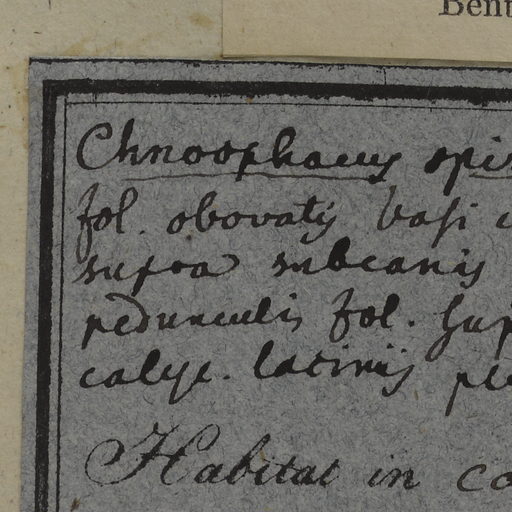 Bent
Chnoophacus spi
fol. obovatis basi
supra subcanis
pedunculis fol. sup
calyc. laciniis pl
Habitat in co